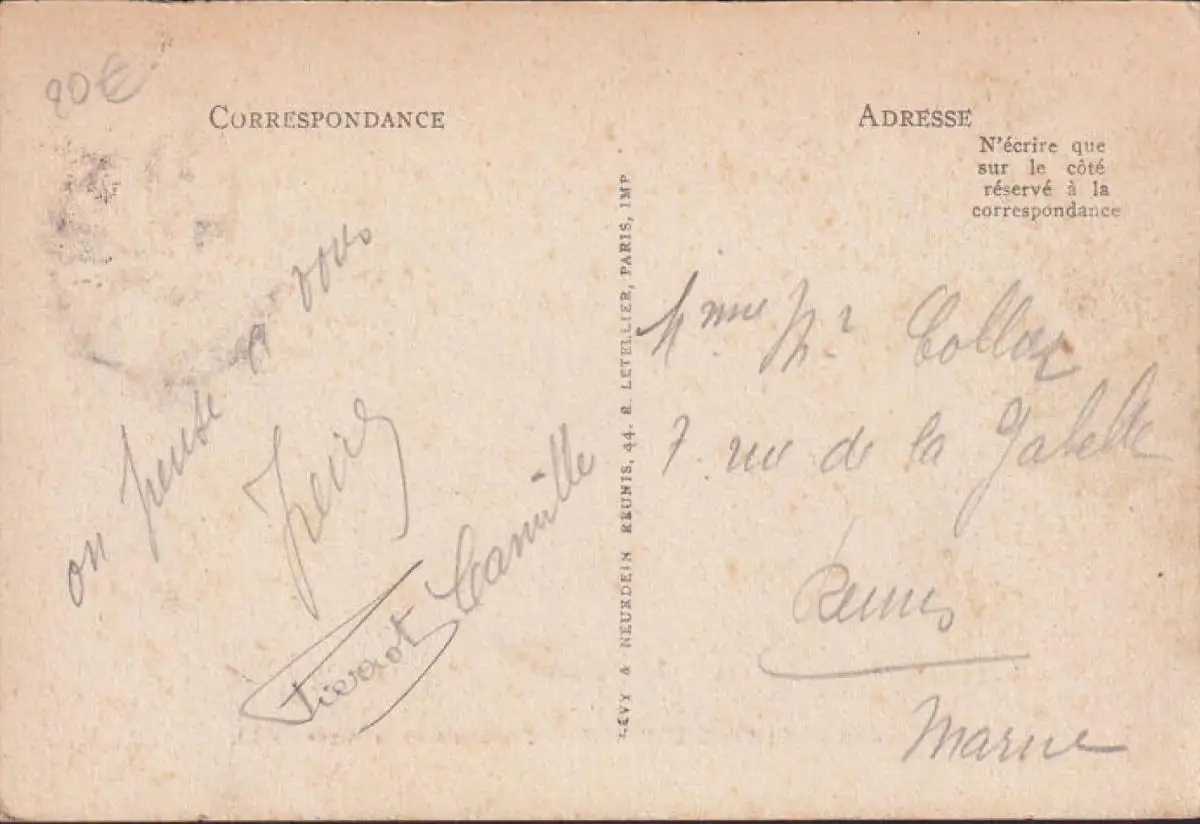 90€
CORRESPONDANCE
on pense a vous
Pivart Camille
LÉVY & NEURDEIN RÉUNIS, 44. R. LETELLIER, PARIS, IMP
ADRESSE
N'écrire que
sur le côté
réservé à la
correspondance
Mme Mr
7 rue de la
Reims
Marne